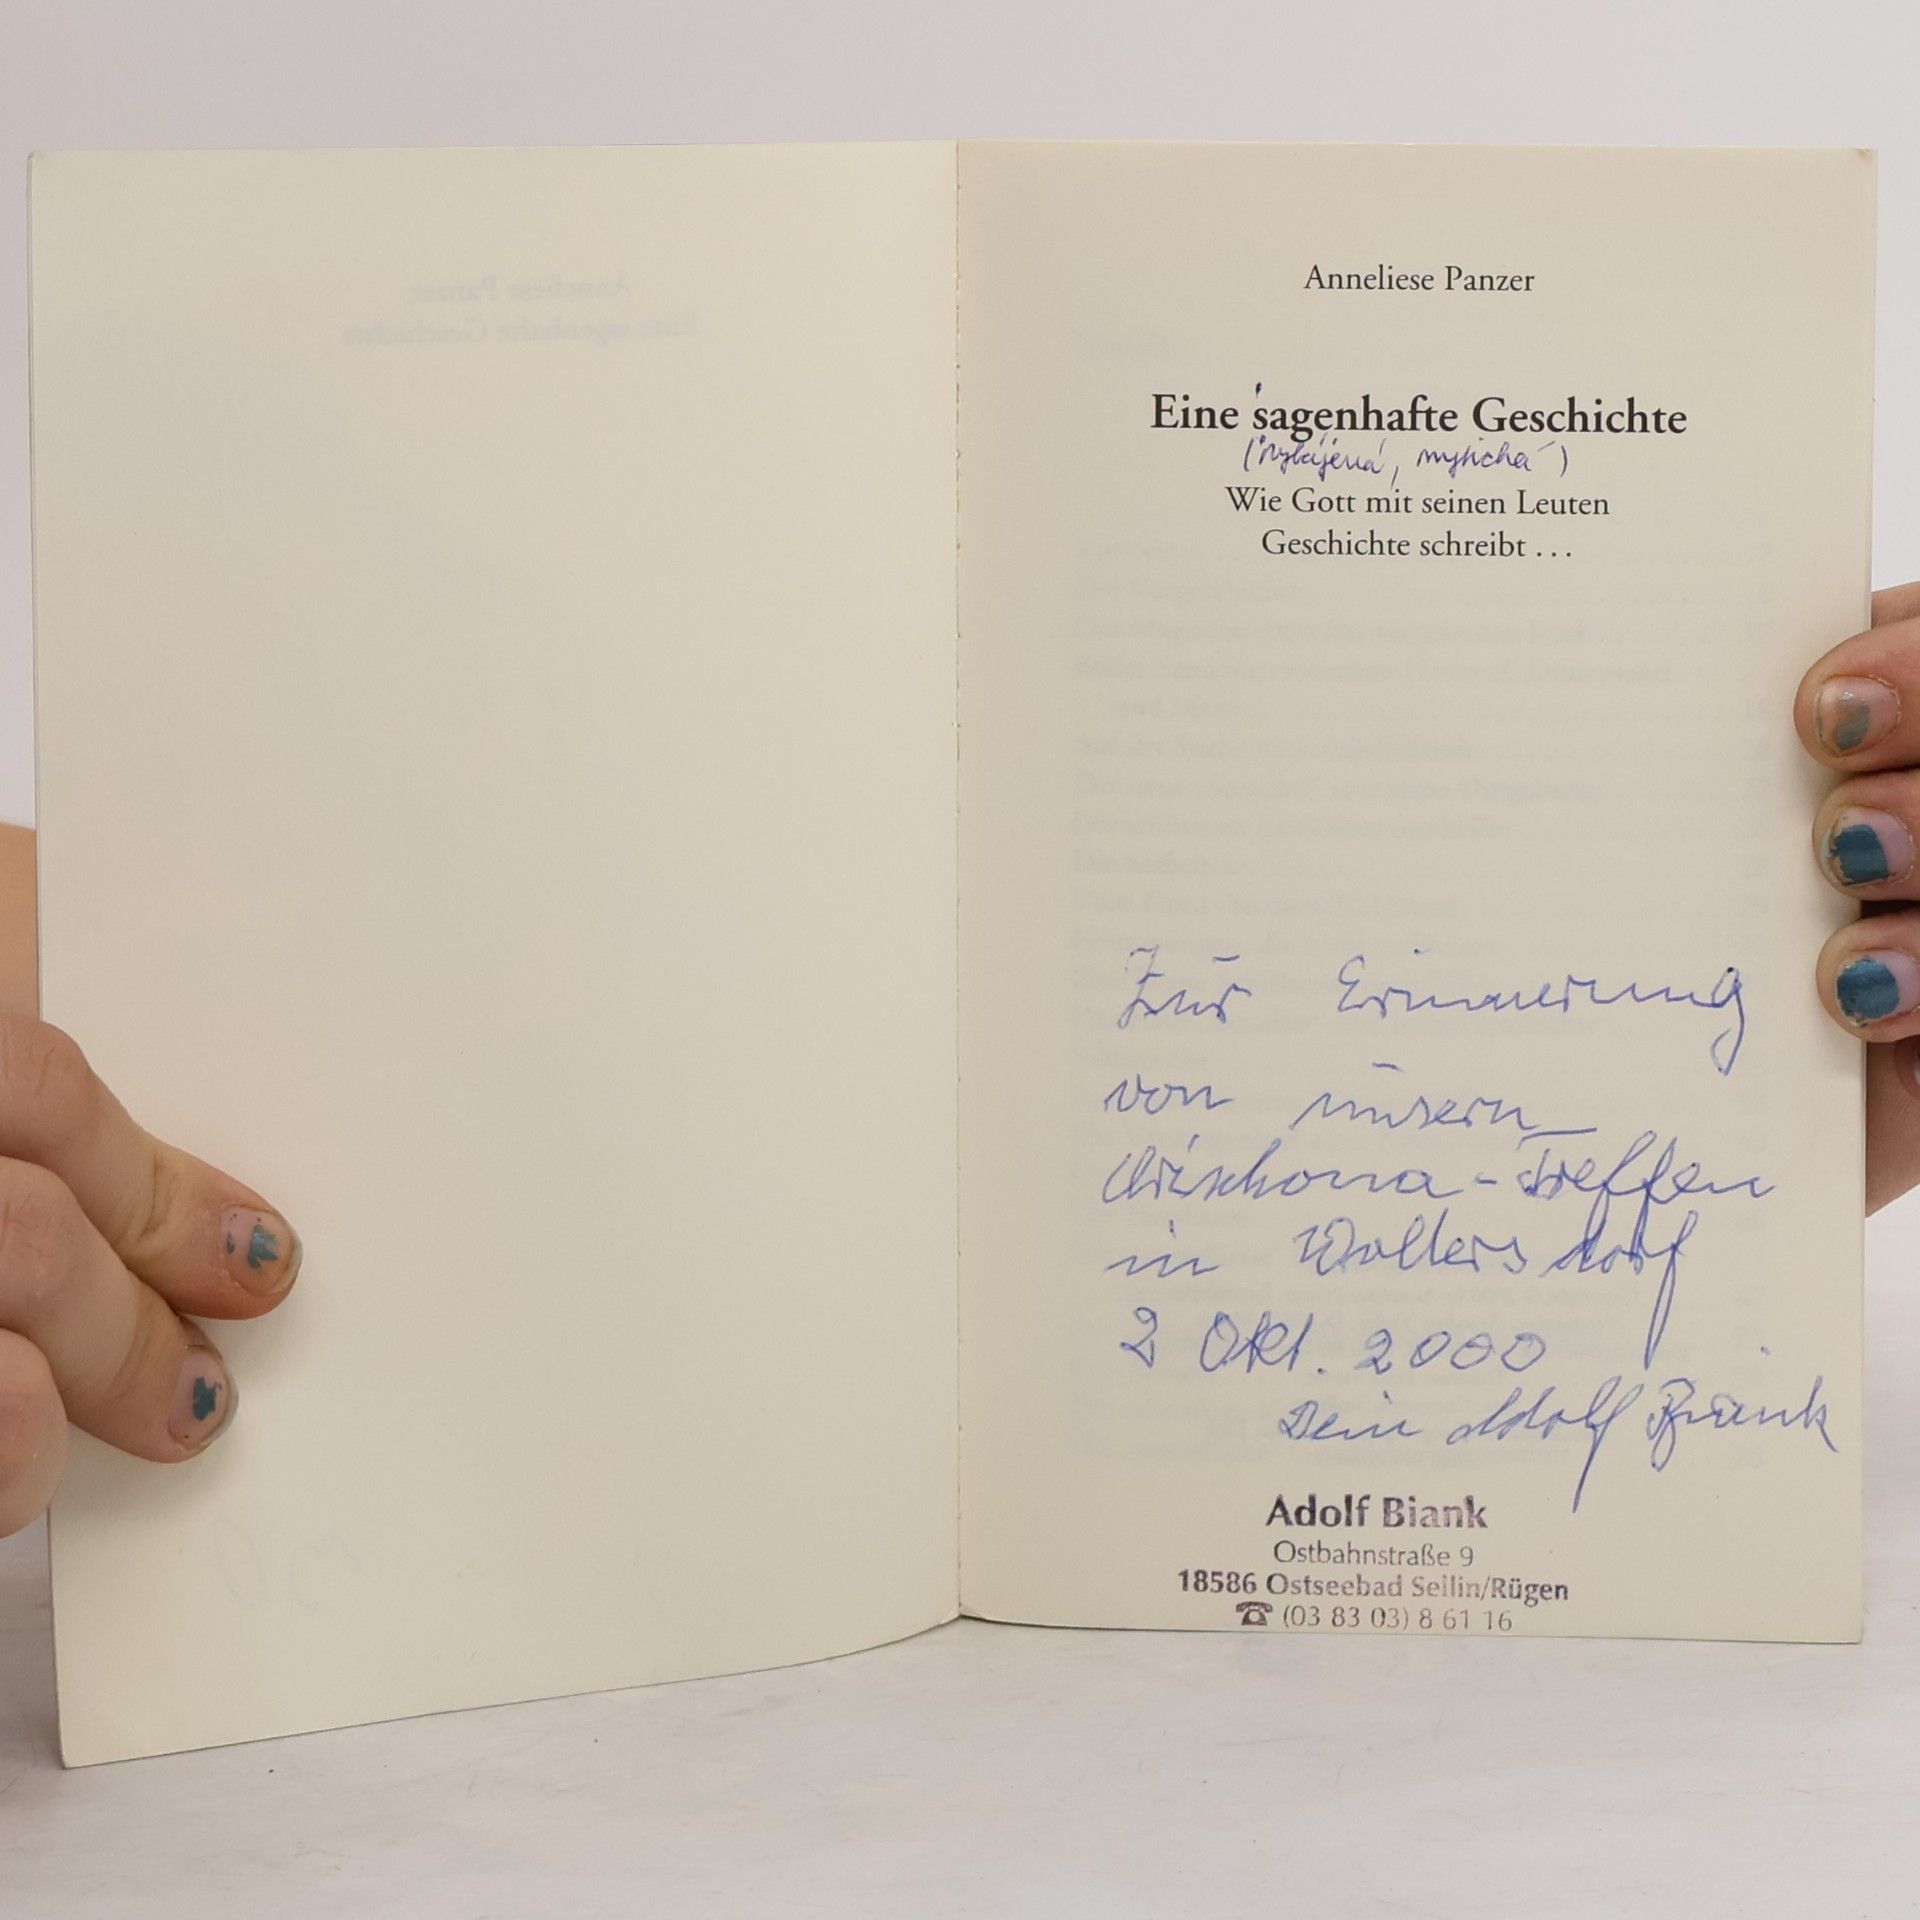 Anneliese Panzer
Eine sagenhafte Geschichte
Anneliese Panzer
Eine sagenhafte Geschichte
(bybájená, mytická)
Wie Gott mit seinen Leuten
Geschichte schreibt . . .
Zur Erinnerung
von unsern
Chrischona-Treffen
in Woltersdorf
2 Okt. 2000
Dein Adolf Biank
Adolf Biank
Ostbahnstraße 9
18586 Ostseebad Sellin/Rügen
☎ (03 83 03) 8 61 16